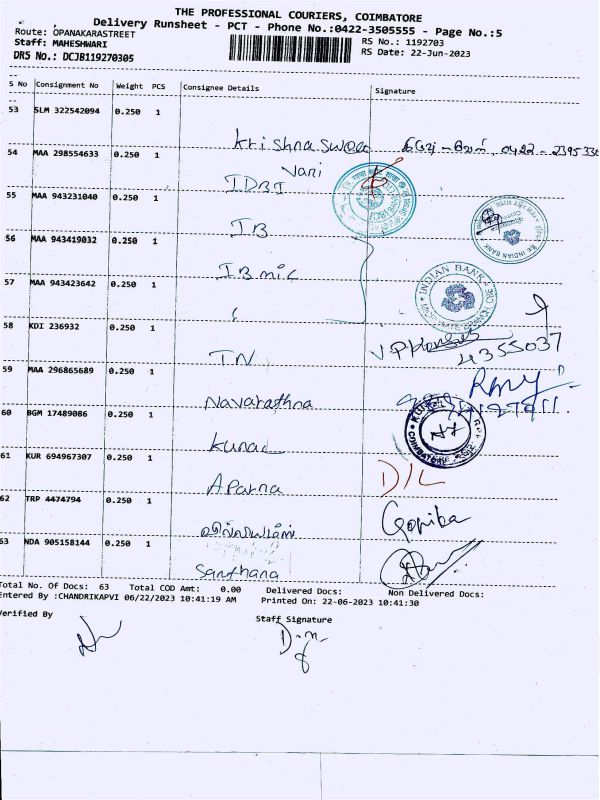 THE PROFESSIONAL COURIERS, COIMBATORE
Delivery Runsheet - PCT - Phone No.:0422-3505555 - Page No.:5
Route: OPANAKARASTREET
RS No.: 1192703
Staff: MAHESHWARI
RS Date: 22-Jun-2023
DRS No.: DCJB119270305
S No Consignment No Weight PCS Consignee Details Signature
53 SLM 322542094 0.250 1
Krishna Sweet 0422 - 2395336
54 MAA 298554633 0.250 1
Vari
IDBI
55 MAA 943231040 0.250 1
IB
56 MAA 943419032 0.250 1
IB mic
INDIAN BANK
57 MAA 943423642 0.250 1
58 KDI 236932 0.250 1
TN
4355037
59 MAA 296865689 0.250 1
Navarathna
60 BGM 17489086 0.250 1
Kunal
61 KUR 694967307 0.250 1
Aparna D/L
62 TRP 4474794 0.250 1
Gopika
63 NDA 905158144 0.250 1
Santhana
Total No. Of Docs: 63 Total COD Amt: 0.00 Delivered Docs: Non Delivered Docs:
Entered By :CHANDRIKAPVI 06/22/2023 10:41:19 AM Printed On: 22-06-2023 10:41:30
Verified By
Staff Signature